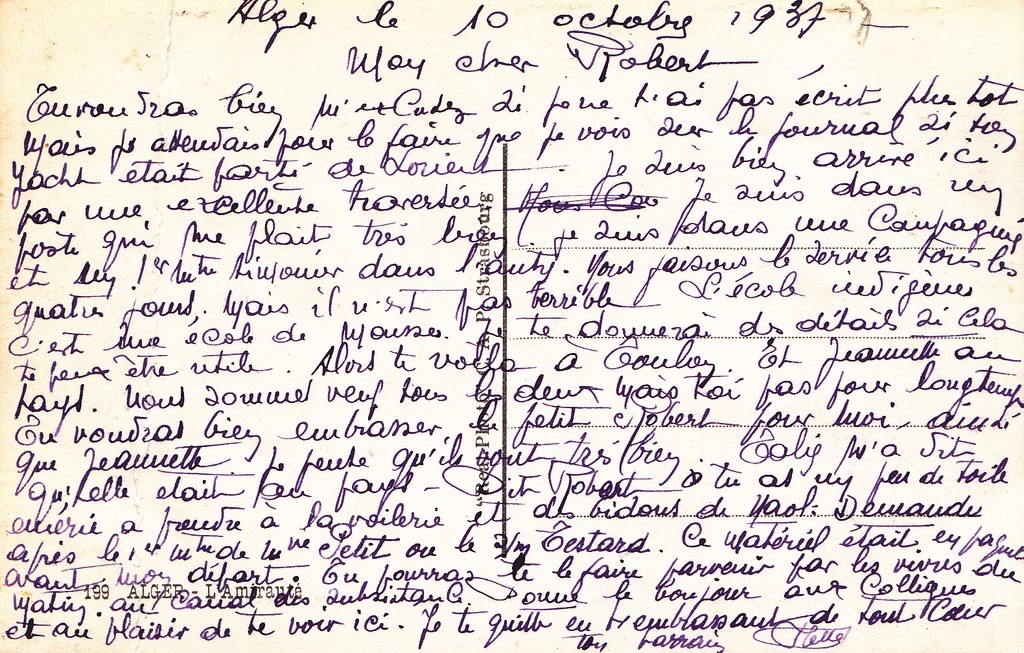 Alger le 10 octobre 1937
Mon cher Robert
Tu voudras bien m'excuser si je ne t'ai pas écrit plus tot
Mais je attendais pour le faire que je vois sur le journal si ton
Yacht était parti de Lorient. Je suis bien arrivé ici
par une excellente traversée. Je suis dans un
poste qui me plait très bien. je suis dans une Compagnie
et un 1er Mtre timonier dans l'autre. Nous faisons le service tous les
quatres jours. Mais il n'est pas terrible L'école indigènes
c'est une école de Masses. Je te donnerai des détails si cela
te peux être utile. Alors te voila à Toulon. Et Jeannette au
pays. Nous sommes veuf tous les deux mais toi pas pour longtemps
Tu voudras bien embrasser le petit Robert pour moi, ainsi
que Jeannette. Je pense qu'ils vont très bien. m'a dit
qu'elle etait au pays - Dit Robert tu as un peu de toile
à prendre à la voilerie et des bidons de Demande
après le 1er Mtre de Mne Petit ou le Testard. Ce matériel était en paquet
avant mon départ. Tu pourras te le faire parvenir par les vivres du
matin au canal des subsistance Donne le bonjour aux Collègues
et au plaisir de te voir ici. Je te quitte en t'embrassant de tout Cœur
ton parrain
199 ALGER - L'Amirauté
"Real-Photo" C. A. P. Strasbourg